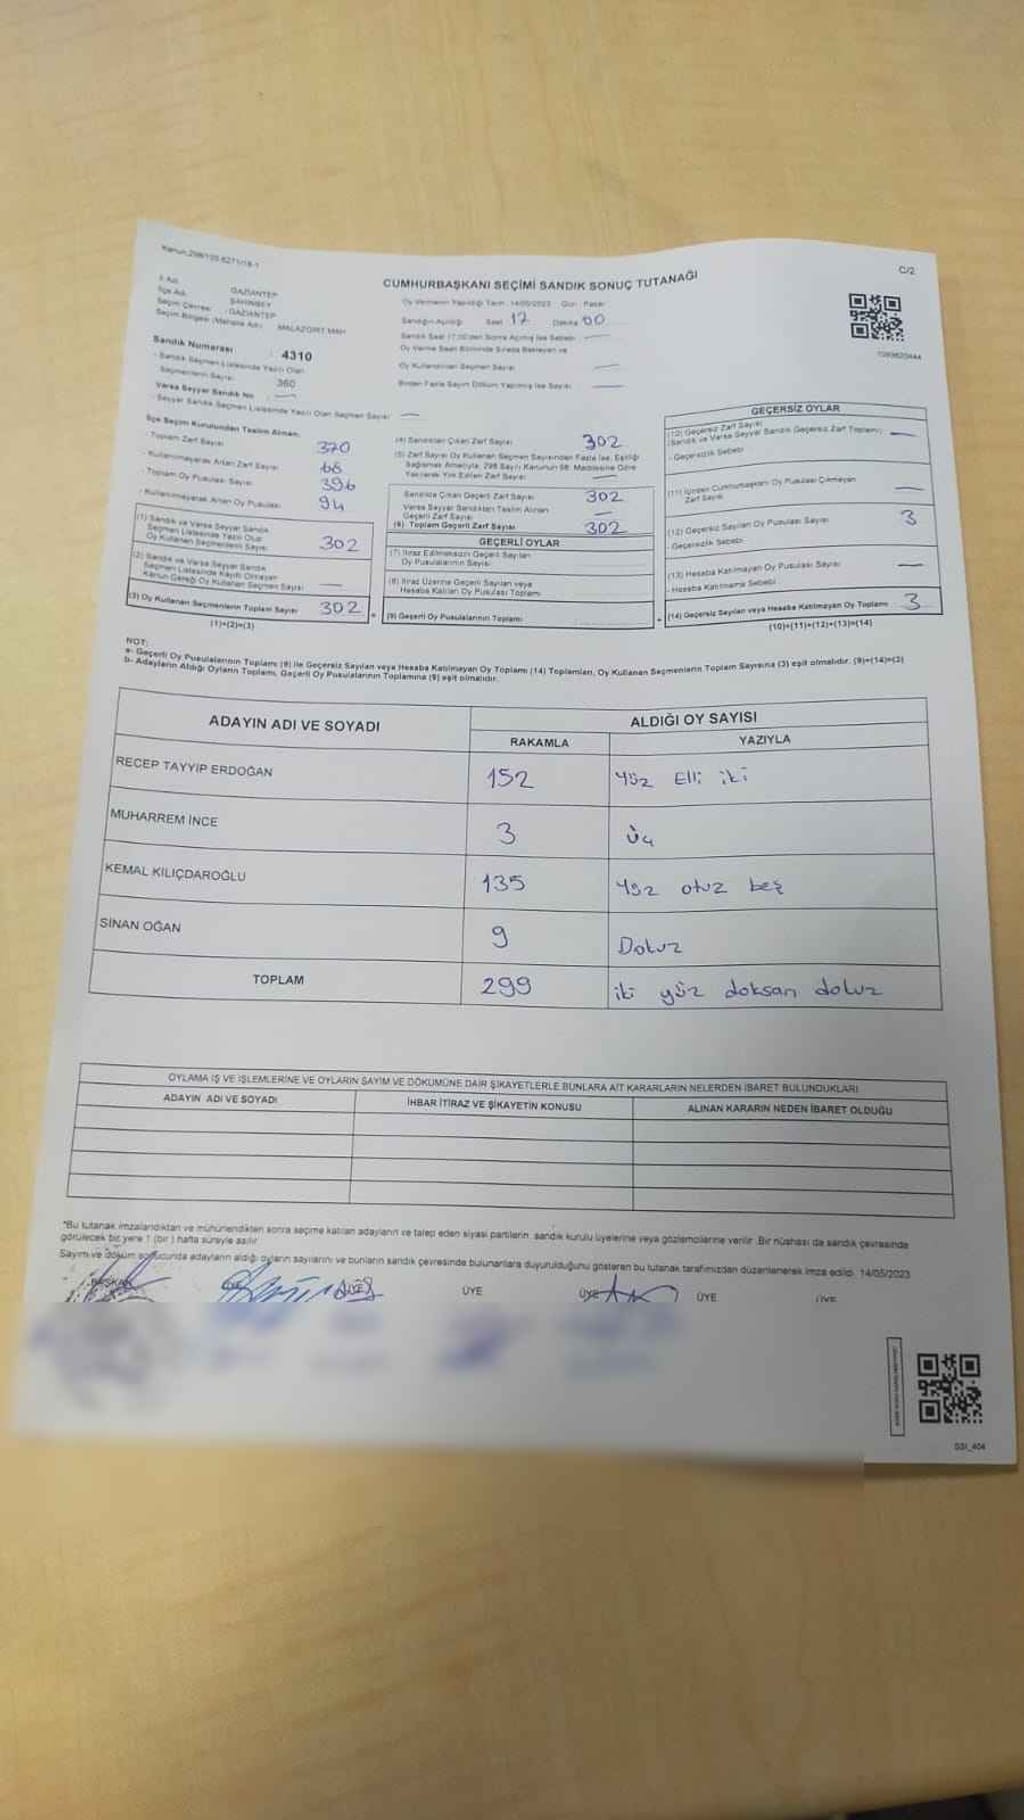 C/2
CUMHURBAŞKANI SEÇİMİ SANDIK SONUÇ TUTANAĞI
İl Adı : GAZİANTEP
İlçe Adı : ŞAHİNBEY
Seçim Çevresi : GAZİANTEP
Seçim Bölgesi (Mahalle Adı) : MALAZGİRT MAH
Sandık Numarası : 4310
- Sandık Seçmen Listesinde Yazılı Olan
Seçmenlerin Sayısı : 360
Varsa Seyyar Sandık No —
- Seyyar Sandık Seçmen Listesinde Yazılı Olan Seçmen Sayısı —
Oy Vermenin Yapıldığı Tarih : 14/05/2023 Gün : Pazar
Sandığın Açıldığı Saat 17 Dakika 00
Sandık Saat 17:00'den Sonra Açılmış İse Sebebi —
Oy Verme Saati Bitiminde Sırada Bekleyen ve
Oy Kullandırılan Seçmen Sayısı —
Birden Fazla Sayım Döküm Yapılmış İse Sayısı —
İlçe Seçim Kurulundan Teslim Alınan;
- Toplam Zarf Sayısı 370
- Kullanılmayarak Artan Zarf Sayısı 68
- Toplam Oy Pusulası Sayısı 396
- Kullanılmayarak Artan Oy Pusulası 94
(1) Sandık ve Varsa Seyyar Sandık
Seçmen Listesinde Yazılı Olup
Oy Kullanan Seçmenlerin Sayısı 302
(2) Sandık ve Varsa Seyyar Sandık
Seçmen Listesinde Kayıtlı Olmayan
Kanun Gereği Oy Kullanan Seçmen Sayısı —
(3) Oy Kullanan Seçmenlerin Toplam Sayısı 302
(1)+(2)=(3)
(4) Sandıktan Çıkan Zarf Sayısı 302
(5) Zarf Sayısı Oy Kullanan Seçmen Sayısından Fazla İse, Eşitliği
Sağlamak Amacıyla, 298 Sayılı Kanunun 98. Maddesine Göre
Yakılarak Yok Edilen Zarf Sayısı —
Sandıkta Çıkan Geçerli Zarf Sayısı 302
Varsa Seyyar Sandıktan Teslim Alınan
Geçerli Zarf Sayısı —
(6) Toplam Geçerli Zarf Sayısı 302
GEÇERLİ OYLAR
(7) İtiraz Edilmeksizin Geçerli Sayılan
Oy Pusulalarının Sayısı
(8) İtiraz Üzerine Geçerli Sayılan veya
Hesaba Katılan Oy Pusulası Toplamı
(9) Geçerli Oy Pusulalarının Toplamı
GEÇERSİZ OYLAR
(10) Geçersiz Zarf Sayısı
(Sandık ve Varsa Seyyar Sandık Geçersiz Zarf Toplamı) —
- Geçersizlik Sebebi
(11) İçinden Cumhurbaşkanı Oy Pusulası Çıkmayan
Zarf Sayısı —
(12) Geçersiz Sayılan Oy Pusulası Sayısı 3
- Geçersizlik Sebebi
(13) Hesaba Katılmayan Oy Pusulası Sayısı —
- Hesaba Katılmama Sebebi
(14) Geçersiz Sayılan veya Hesaba Katılmayan Oy Toplamı 3
(10)+(11)+(12)+(13)=(14)
NOT:
a- Geçerli Oy Pusulalarının Toplamı (9) ile Geçersiz Sayılan veya Hesaba Katılmayan Oy Toplamı (14) Toplamları, Oy Kullanan Seçmenlerin Toplam Sayısına (3) eşit olmalıdır. (9)+(14)=(3)
b- Adayların Aldığı Oyların Toplamı, Geçerli Oy Pusulalarının Toplamına (9) eşit olmalıdır.
ADAYIN ADI VE SOYADI ALDIĞI OY SAYISI
RAKAMLA YAZIYLA
RECEP TAYYİP ERDOĞAN 152 Yüz Elli iki
MUHARREM İNCE 3 üç
KEMAL KILIÇDAROĞLU 135 Yüz otuz beş
SİNAN OĞAN 9 Dokuz
TOPLAM 299 iki yüz doksan dokuz
OYLAMA İŞ VE İŞLEMLERİNE VE OYLARIN SAYIM VE DÖKÜMÜNE DAİR ŞİKAYETLERLE BUNLARA AİT KARARLARIN NELERDEN İBARET BULUNDUKLARI
ADAYIN ADI VE SOYADI İHBAR İTİRAZ VE ŞİKAYETİN KONUSU ALINAN KARARIN NEDEN İBARET OLDUĞU
*Bu tutanak imzalandıktan ve mühürlendikten sonra seçime katılan adayların ve talep eden siyasi partilerin sandık kurulu üyelerine veya gözlemcilerine verilir. Bir nüshası da sandık çevresinde
görülecek bir yere 1 (bir) hafta süreyle asılır.
Sayım ve döküm sonucunda adayların aldığı oyların sayılarını ve bunların sandık çevresinde bulunanlara duyurulduğunu gösteren bu tutanak tarafımızdan düzenlenerek imza edildi. 14/05/2023
BAŞKAN ÜYE ÜYE ÜYE ÜYE ÜYE